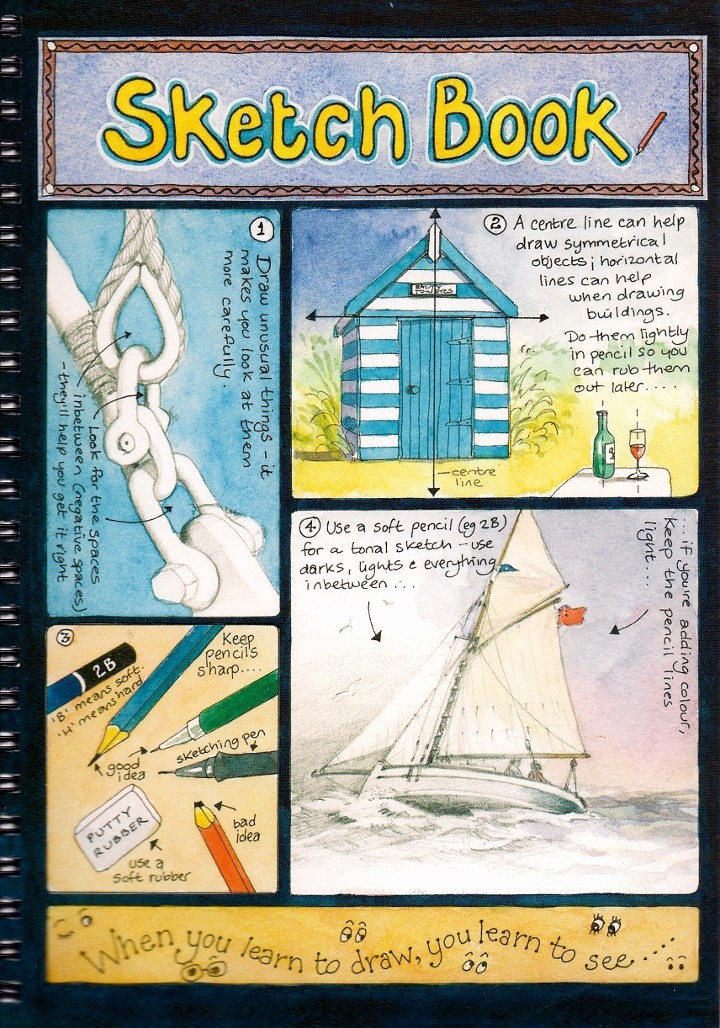 Sketch Book
1
Draw unusual things - it
makes you look at them
more carefully
Look for the spaces
inbetween (negative spaces)
- they'll help you get it right
2 A centre line can help
draw symmetrical
objects; horizontal
lines can help
when drawing
buildings.
Do them lightly
in pencil so you
can rub them
out later....
centre
line
3
2B
'B' means soft.
'H' means hard
Keep
pencils
sharp....
good
idea
sketching pen
PUTTY
RUBBER
use a
soft rubber
bad
idea
4 Use a soft pencil (eg 2B)
for a tonal sketch - use
darks, lights & everything
inbetween ...
... if you're adding colour,
keep the pencil lines
light....
When you learn to draw, you learn to see .....